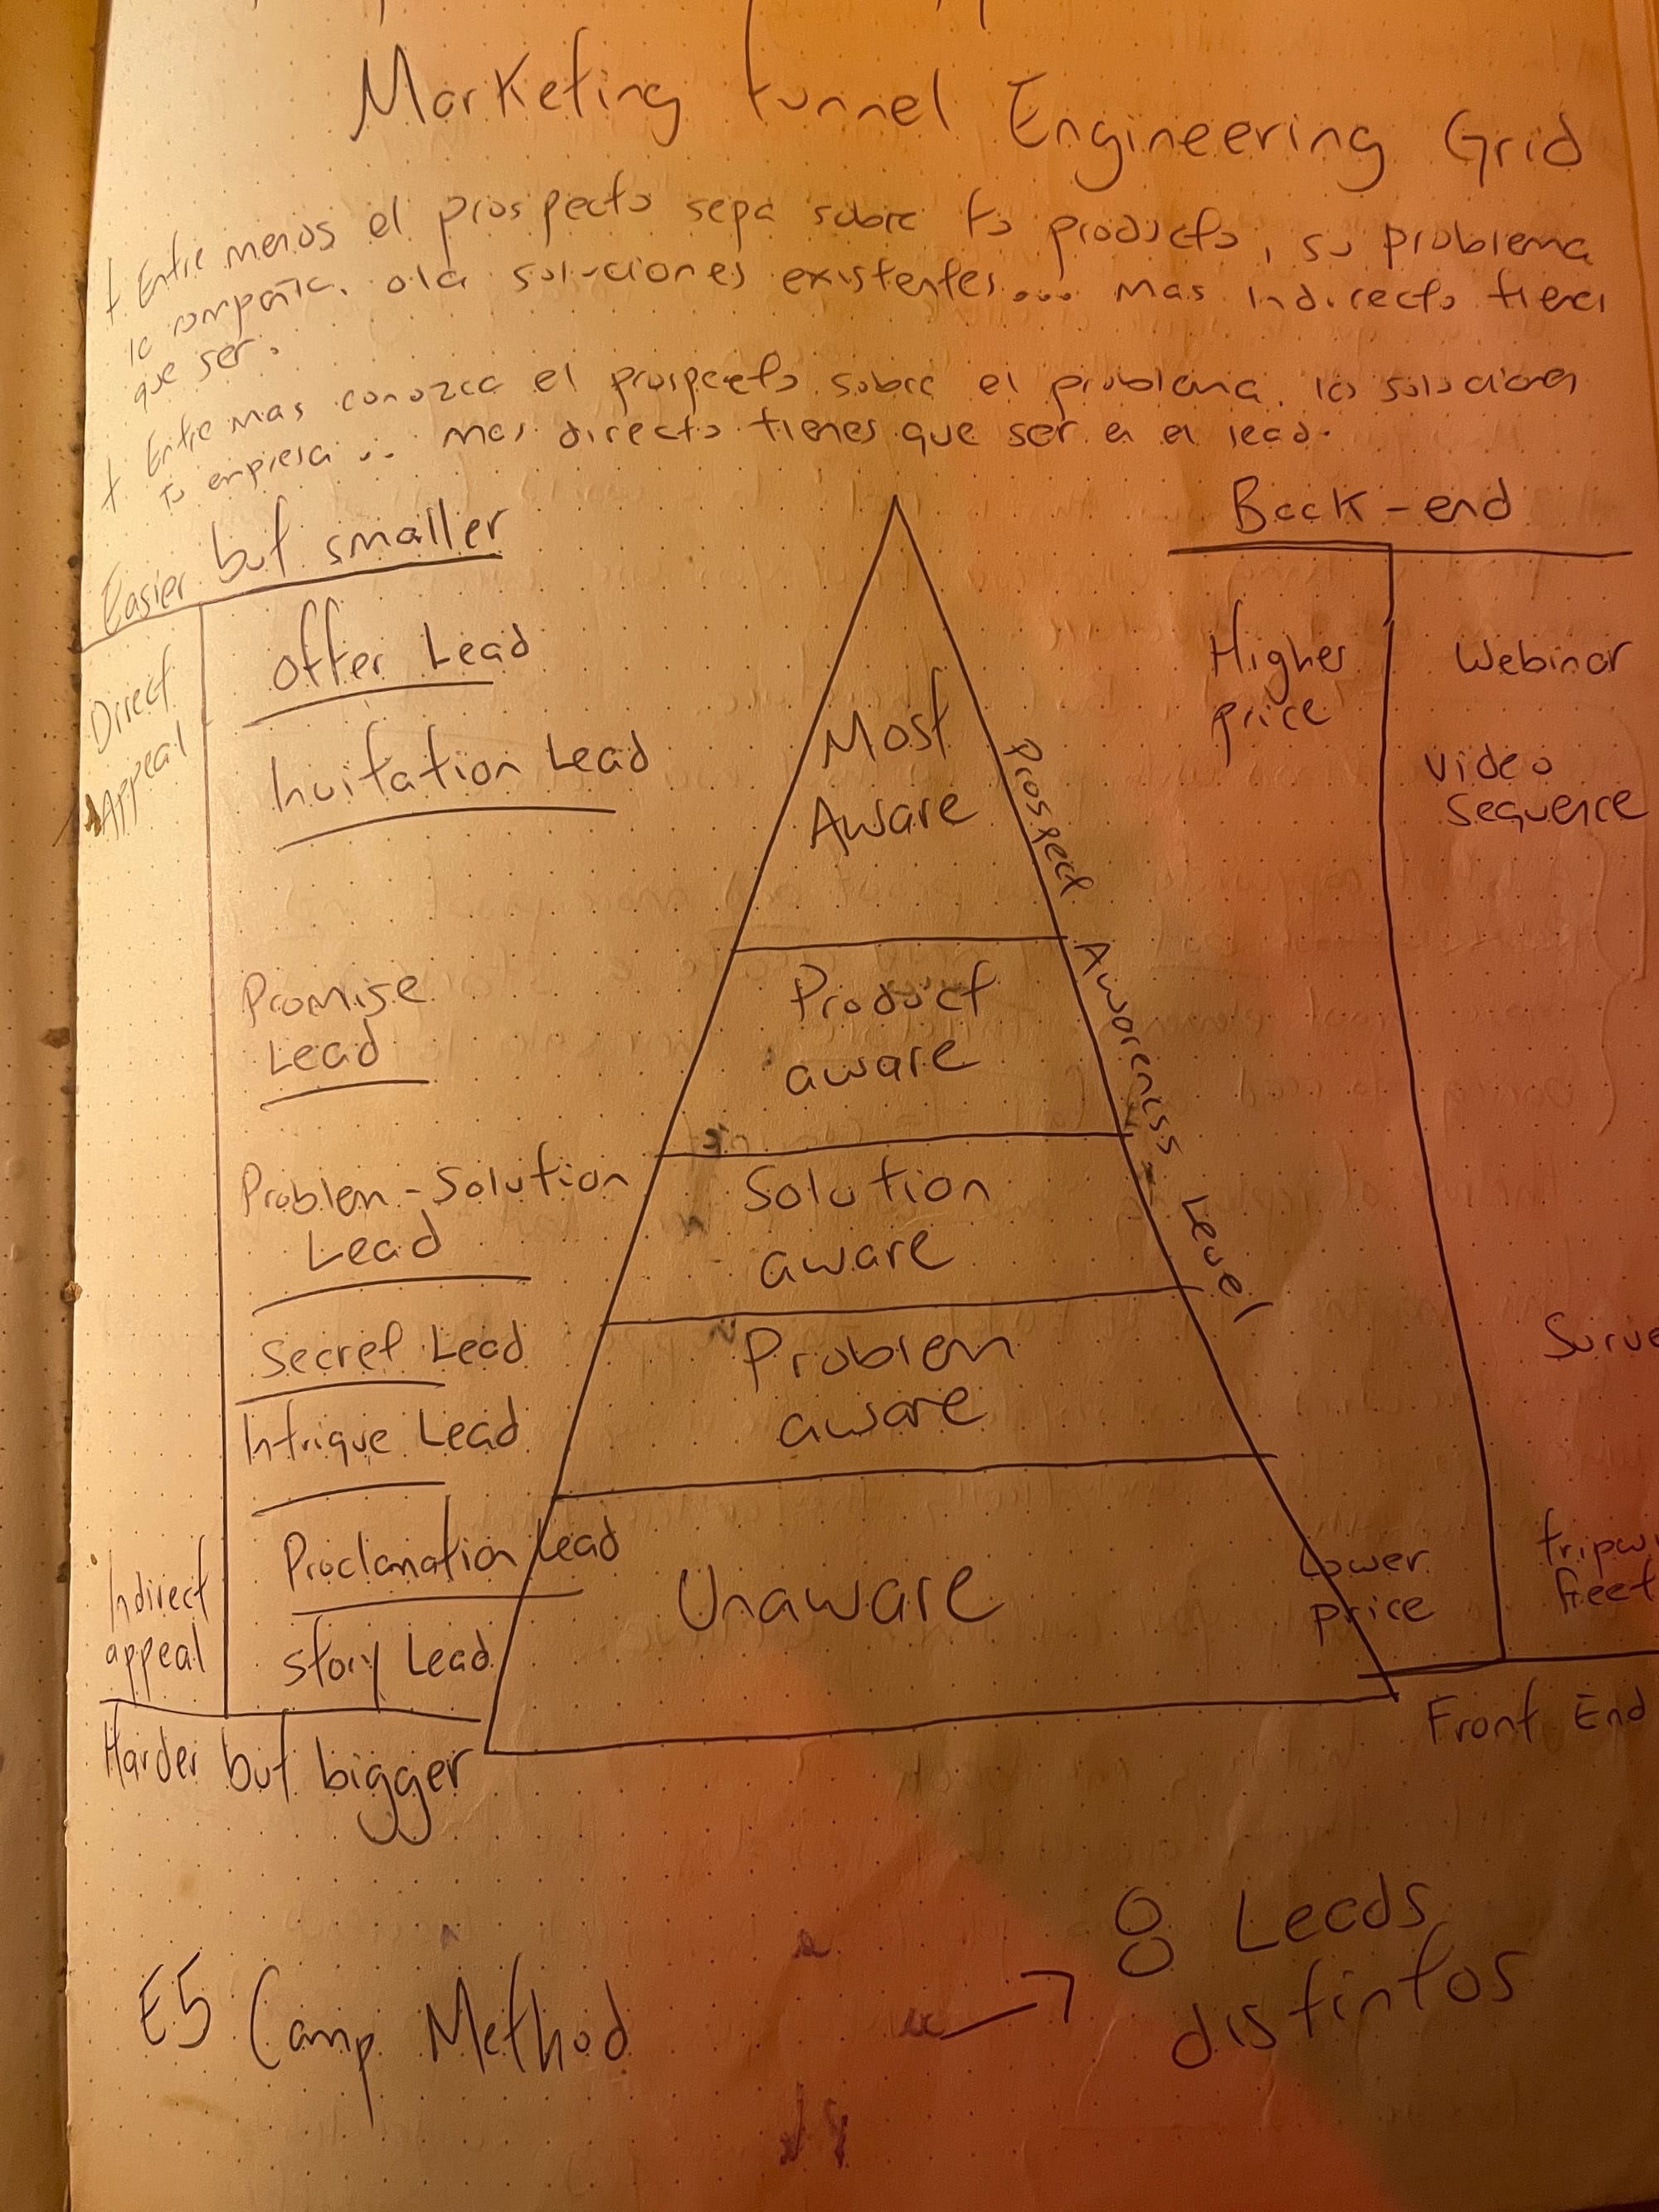 Marketing Funnel Engineering Grid
+ Entre menos el prospecto sepa sobre tu producto, su problema
la compañia, o la soluciones existentes... mas indirecto tienes
que ser.
+ Entre mas conozca el prospecto sobre el problema, las soluciones
tu empresa... mas directo tienes que ser en el lead.
Easier but smaller
Direct
Appeal
Offer Lead
Invitation Lead
Promise
Lead
Problem-Solution
Lead
Secret Lead
Intrigue Lead
Proclamation Lead
Story Lead
Indirect
appeal
Harder but bigger
Most
Aware
Product
aware
Solution
aware
Problem
aware
Unaware
Prospect Awareness Level
Back-end
Higher
price
Webinar
Video
Sequence
Surve
Lower
price
tripwi
Front End
E5 Camp Method
→ 8 Leads
distintos